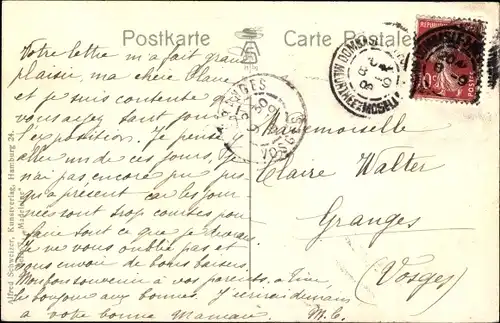 Postkarte
Carte Postale
Votre lettre m'a fait grand
plaisir, ma chère
et je suis contente
vous ayez tant joui
l'exposition. Je pense
aller un de ces jours, Je
n'ai pas encore pu jus-
qu'à présent car les jour
nées sont trop courtes pour
faire tout ce que je devrais.
Je ne vous oublie pas et
vous envoie de bons baisers.
Mon bon souvenir à vos parents, à
le bonjour aux bonnes. J'écrirai demain
à votre bonne Maman. M. C.
Mademoiselle
Claire Walter
Granges
(Vosges)
Alfred Schweizer, Kunstverlag, Hamburg 24.
"Madeleine"
GRANGES
VOSGES
DOMBASLE
MEURTHE-ET-MOSELLE
10c
POSTES